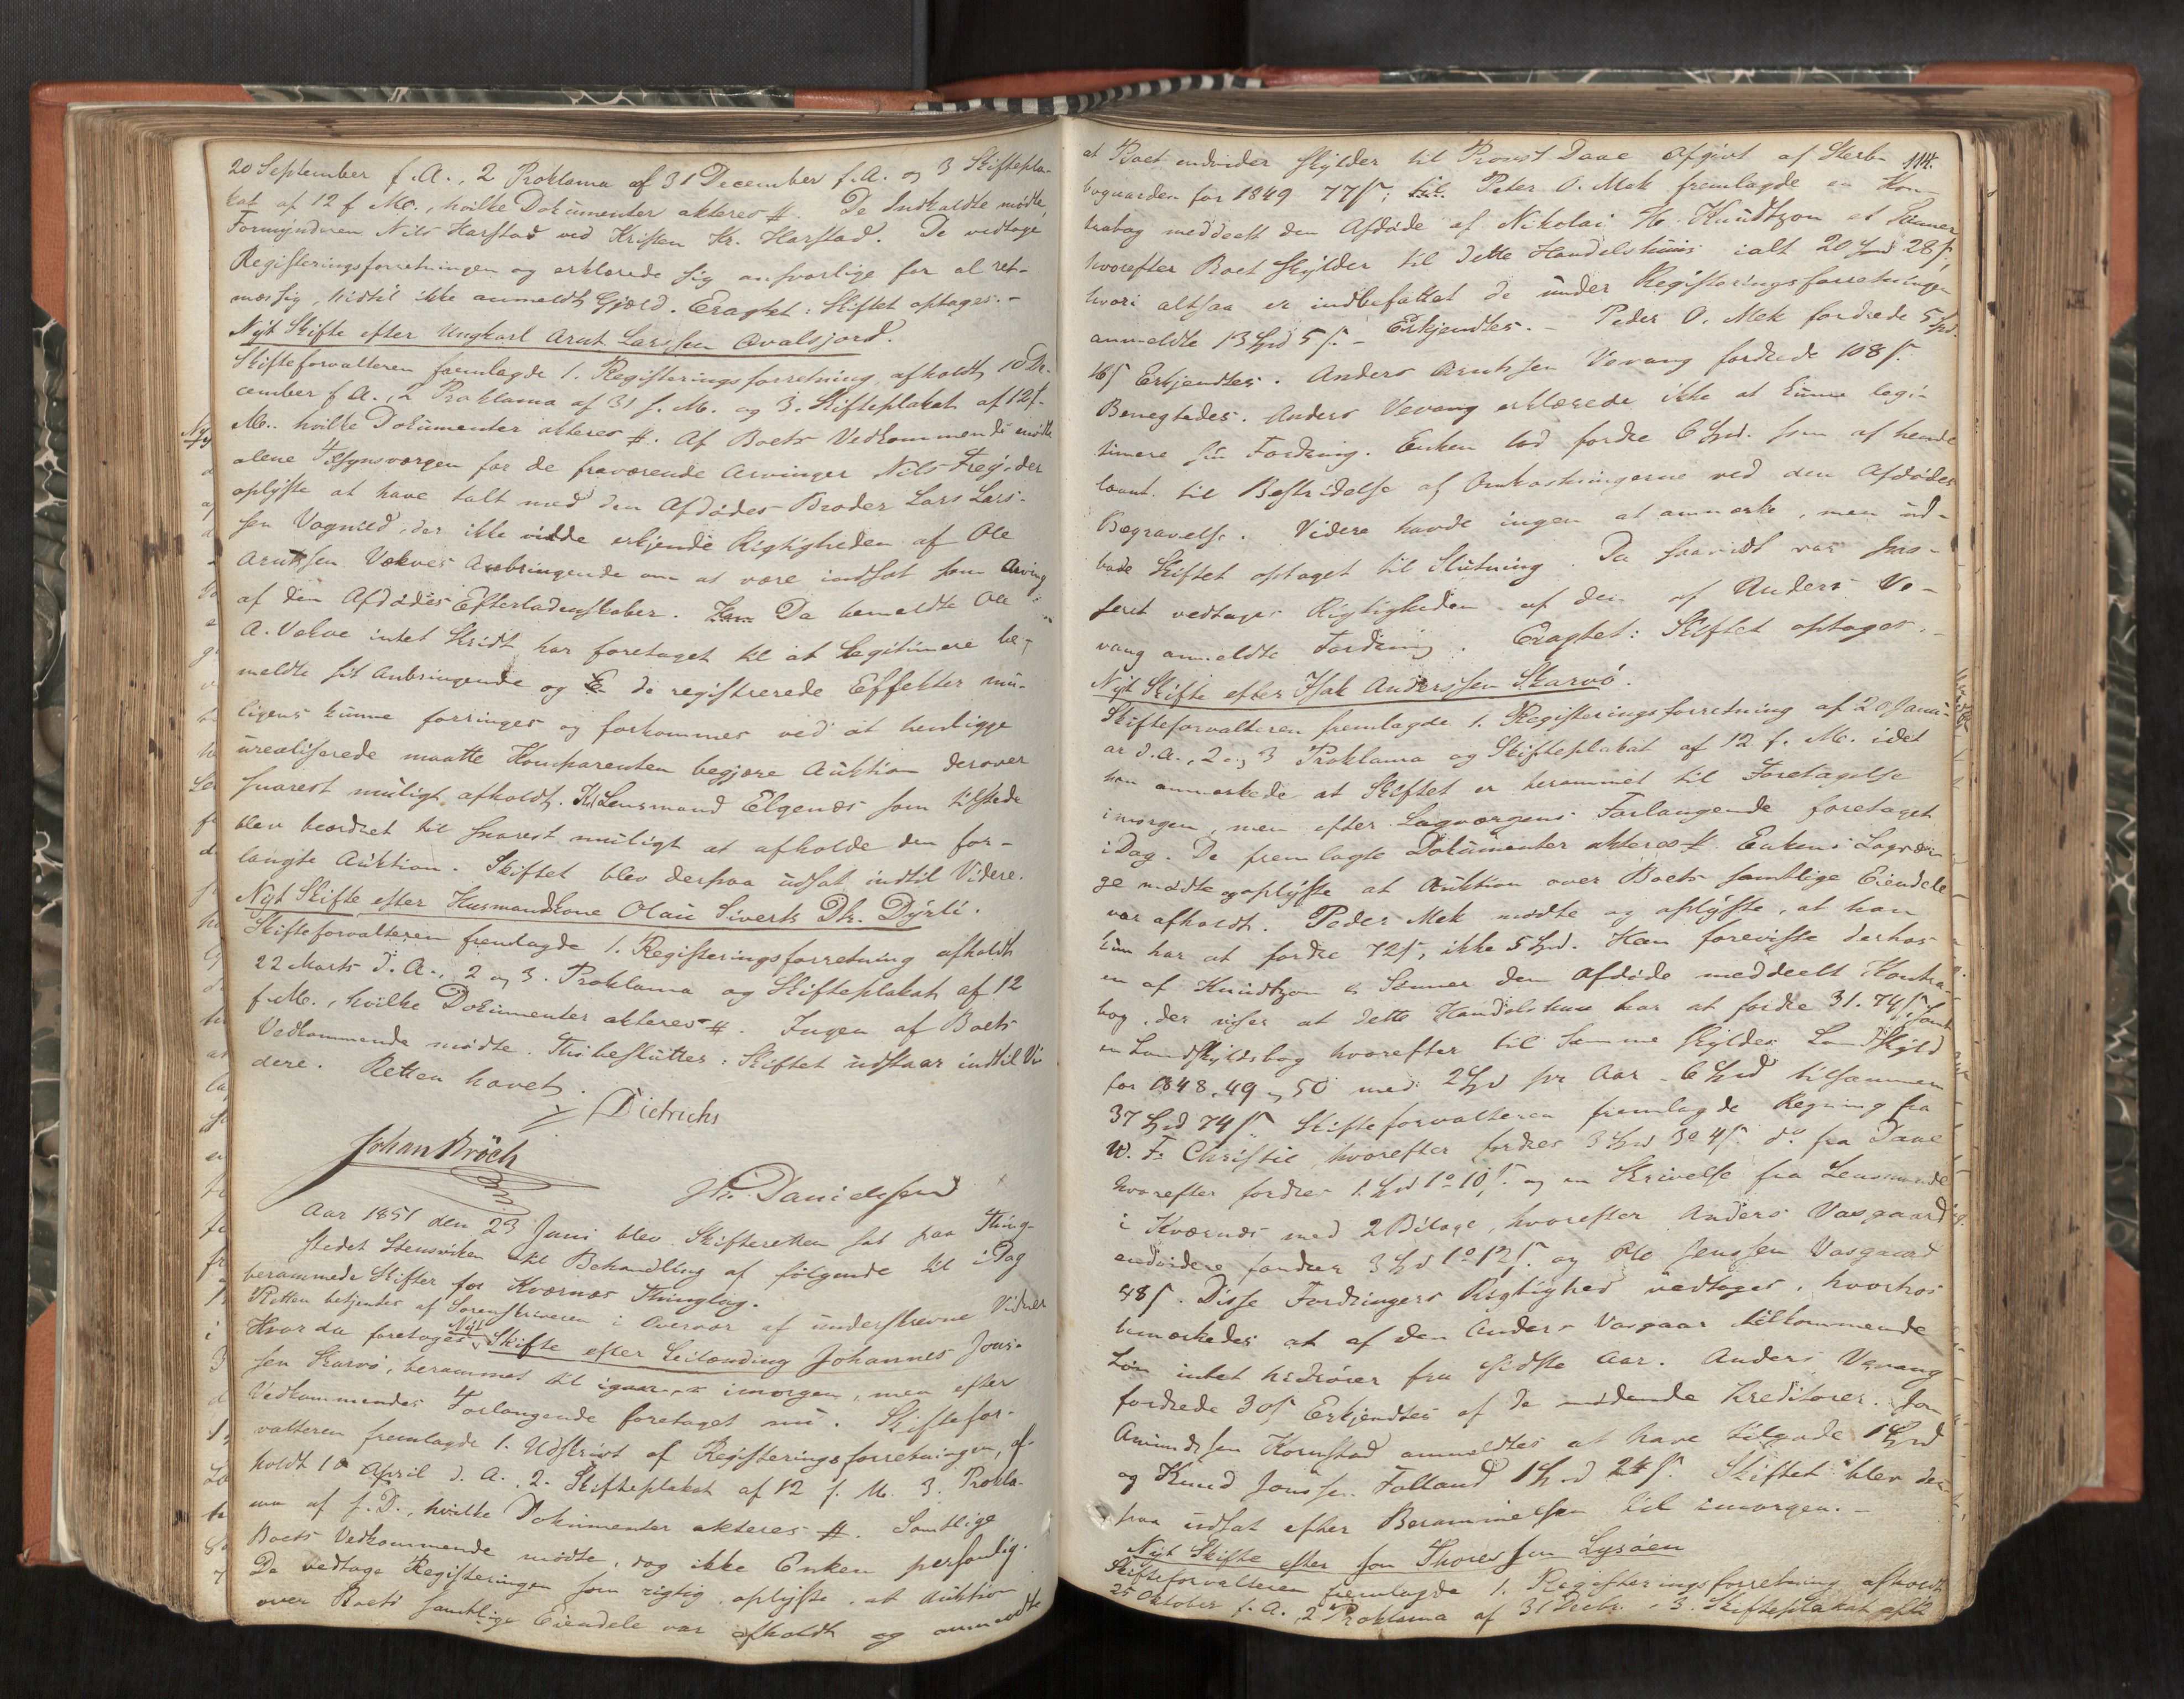 20 September f. A., 2 Proklama af 31 December f. A. og 3 Skiftepla-
kat af 12 f. M., hvilke Dokumenter akteres #. De Indkaldte mødte,
Formynderen Nils Harstad ved Kristen Kr. Harstad. De vedtoge
Registeringsforretningen og erklærede sig ansvarlige for al ret-
mæssig, hidtil ikke anmeldt Gjæld. Eragtet: Skiftet optages. -
Nyt Skifte efter Ungkarl Arnt Larssen Qvalsjord.
Skifteforvalteren fremlagde 1. Registeringsforretning, afholdt 10 De-
cember f. A., 2 Proklama af 31 s. M. og 3. Skifteplakat af 12 f.
M. hvilke Dokumenter akteres #. Af Boets Vedkommende mødte
alene Tilsynsværgen for de fraværende Arvinger Nils Frey, der
oplyste at have talt med den Afdødes Broder Lars Lars-
sen Vognild, der ikke vidde erkjende Rigtigheden af Ole
Arntssen Vekves Anbringende om at være indsat som Arving
af den Afdødes Efterladenskaber. Da bemeldte Ole
A. Vekve intet Skridt har foretaget til at legitimere be-
meldte sit Anbringende og de registrerede Effekter mu-
ligens kunne forringes og forkommes ved at henligge
urealiserede maatte Komparenten begjære Auktion derover
snarest muligt afholdt. Kst Lensmand Elgenæs som tilstede
blev beordret til snarest muligt at afholde den for-
langte Auktion. Skiftet blev derpaa udsat indtil Videre.
Nyt Skifte efter Husmandskone Olau Siverts Dtr. Dyrli.
Skifteforvalteren fremlagde 1. Registeringsforretning afholdt
22 Marts d. A., 2 og 3. Proklama og Skifteplakat af 12
f. M., hvilke Dokumenter akteres #. Ingen af Boets
Vedkommende mødte. Thi besluttes: Skiftet udstaar indtil Vi-
dere. Retten hævet.
Dietrichs
Johan Bröch
Danielssen
Aar 1851 den 23 Juni blev Skifteretten sat paa Thing-
stedet Stensviken til Behandling af følgende til i Dag
berammede Skifter for Kværnæs Thinglag.
Retten betjentes af Sorenskriveren i Overvær af underskrevne Vidner
Hvor da foretoges Nyt Skifte efter Leilænding Johannes Jons-
sen Skarvø, berammet til imorgen, men efter
Vedkommendes Forlangende foretaget nu. Skiftefor-
valteren fremlagde 1. Udskrivt af Registeringsforretningen, af-
holdt 10 April d. A. 2. Skifteplakat af 12 f. M. 3. Prokla-
ma af s. D., hvilke Dokumenter akteres #. Samtlige
Boets Vedkommende mødte, dog ikke Enken personlig.
De vedtoge Registeringen som rigtig, oplyste, at Auktion
over Boets samtlige Eiendele var afholdt og anmeldte
114.
at Boet endvider skylder til Provst Daae Afgivt af
for 1849 77 s; Peter O. Mek fremlagde en Kon-
trabog meddeelt den Afdøde af Nikolai H. Knudtzon et Sønner
hvorefter Boet skylder til dette Handelshuus ialt 20 Spd 28 s,
hvori altsaa er indbefattet de under Registeringsforretningen
anmeldte 13 Spd 5 s. - Erkjendtes. - Peder O. Mek fordrede 5 Spd.
16 s Erkjendtes. Anders Arntssen Vevang fordrede 108 s.
Benegtedes. Anders Vevang erklærede ikke at kunne legi-
timere sin Fordring. Enken lod fordre 6 Spd. som af hende
laant til Bestridelse af Omkostningerne ved den Afdødes
Begravelse. Videre havde ingen at anmærke, men ud-
bade Skiftet optaget til Slutning. Da saavidt var
vedtages Rigtigheden af den af Anders Ve-
vang anmeldte Fordring. Eragtet: Skiftet optages. -
Nyt Skifte efter Isak Anderssen Skarvø.
Skifteforvalteren fremlagde 1. Registeringsforretning af 20 Janu-
ar d. A., 2 og 3 Proklama og Skifteplakat af 12 f. M. idet
han anmærkede at Skiftet er berammet til Foretagelse
imorgen, men efter Lagværgens Forlangende foretaget
i Dag. De fremlagte Dokumenter akteres #. Enkens Lagvær-
ge mødte og oplyste at Auktion over Boets samtlige Eiendele
var afholdt. Peder Mek mødte og oplyste, at han
kun har at fordre 72 s, ikke 5 Spd. Han foreviste derhos
en af Knudtzon & Sønner den Afdøde meddeelt Kontra-
bog, der viser at dette Handelshuus har at fordre 31. 74 s, samt
en Landskyldsbog hvorefter til Samme skyldes Landskyld
for 1848, 49 og 50 med 2 Spd pr Aar - 6 Spd tilsammen
37 Spd 74 s. Skifteforvalteren fremlagde Regning fra
W. F. Christie hvorefter fordres 3 Spd 3 o 4 s. do fra Daae
hvorefter fordres 1 Spd 1 o 10 s. og en Skrivelse fra Lensmanden
i Kværnæs med 2 Bilage, hvorefter Anders Vaagaard
endvidere fordrer 3 Spd 1 o 12 s. og Ole Jenssen Vasgaard
48 s. Disse Fordringers Rigtighed vedtoges, hvorhos
bemærkedes at af den Anders Vasgaar tilkommende
Løn intet hidrører fra sidste Aar. Anders Vevang
fordrede 30 s Erkjendtes af de mødende Kreditorer. Jon
Amundssen Kornstad anmeldtes at have tilgode 1 Spd
og Knud Jonssen Folland 1 Spd 24 s. Skiftet blev der-
paa udsat efter Berammelsen til imorgen. -
Nyt Skifte efter Jon Thoressen Lysøen
Skifteforvalteren fremlagde 1. Registeringsforretning afholdt
25 Oktober f. A., 2 Proklama af 31 Decbr., 3. Skifteplakat af 12